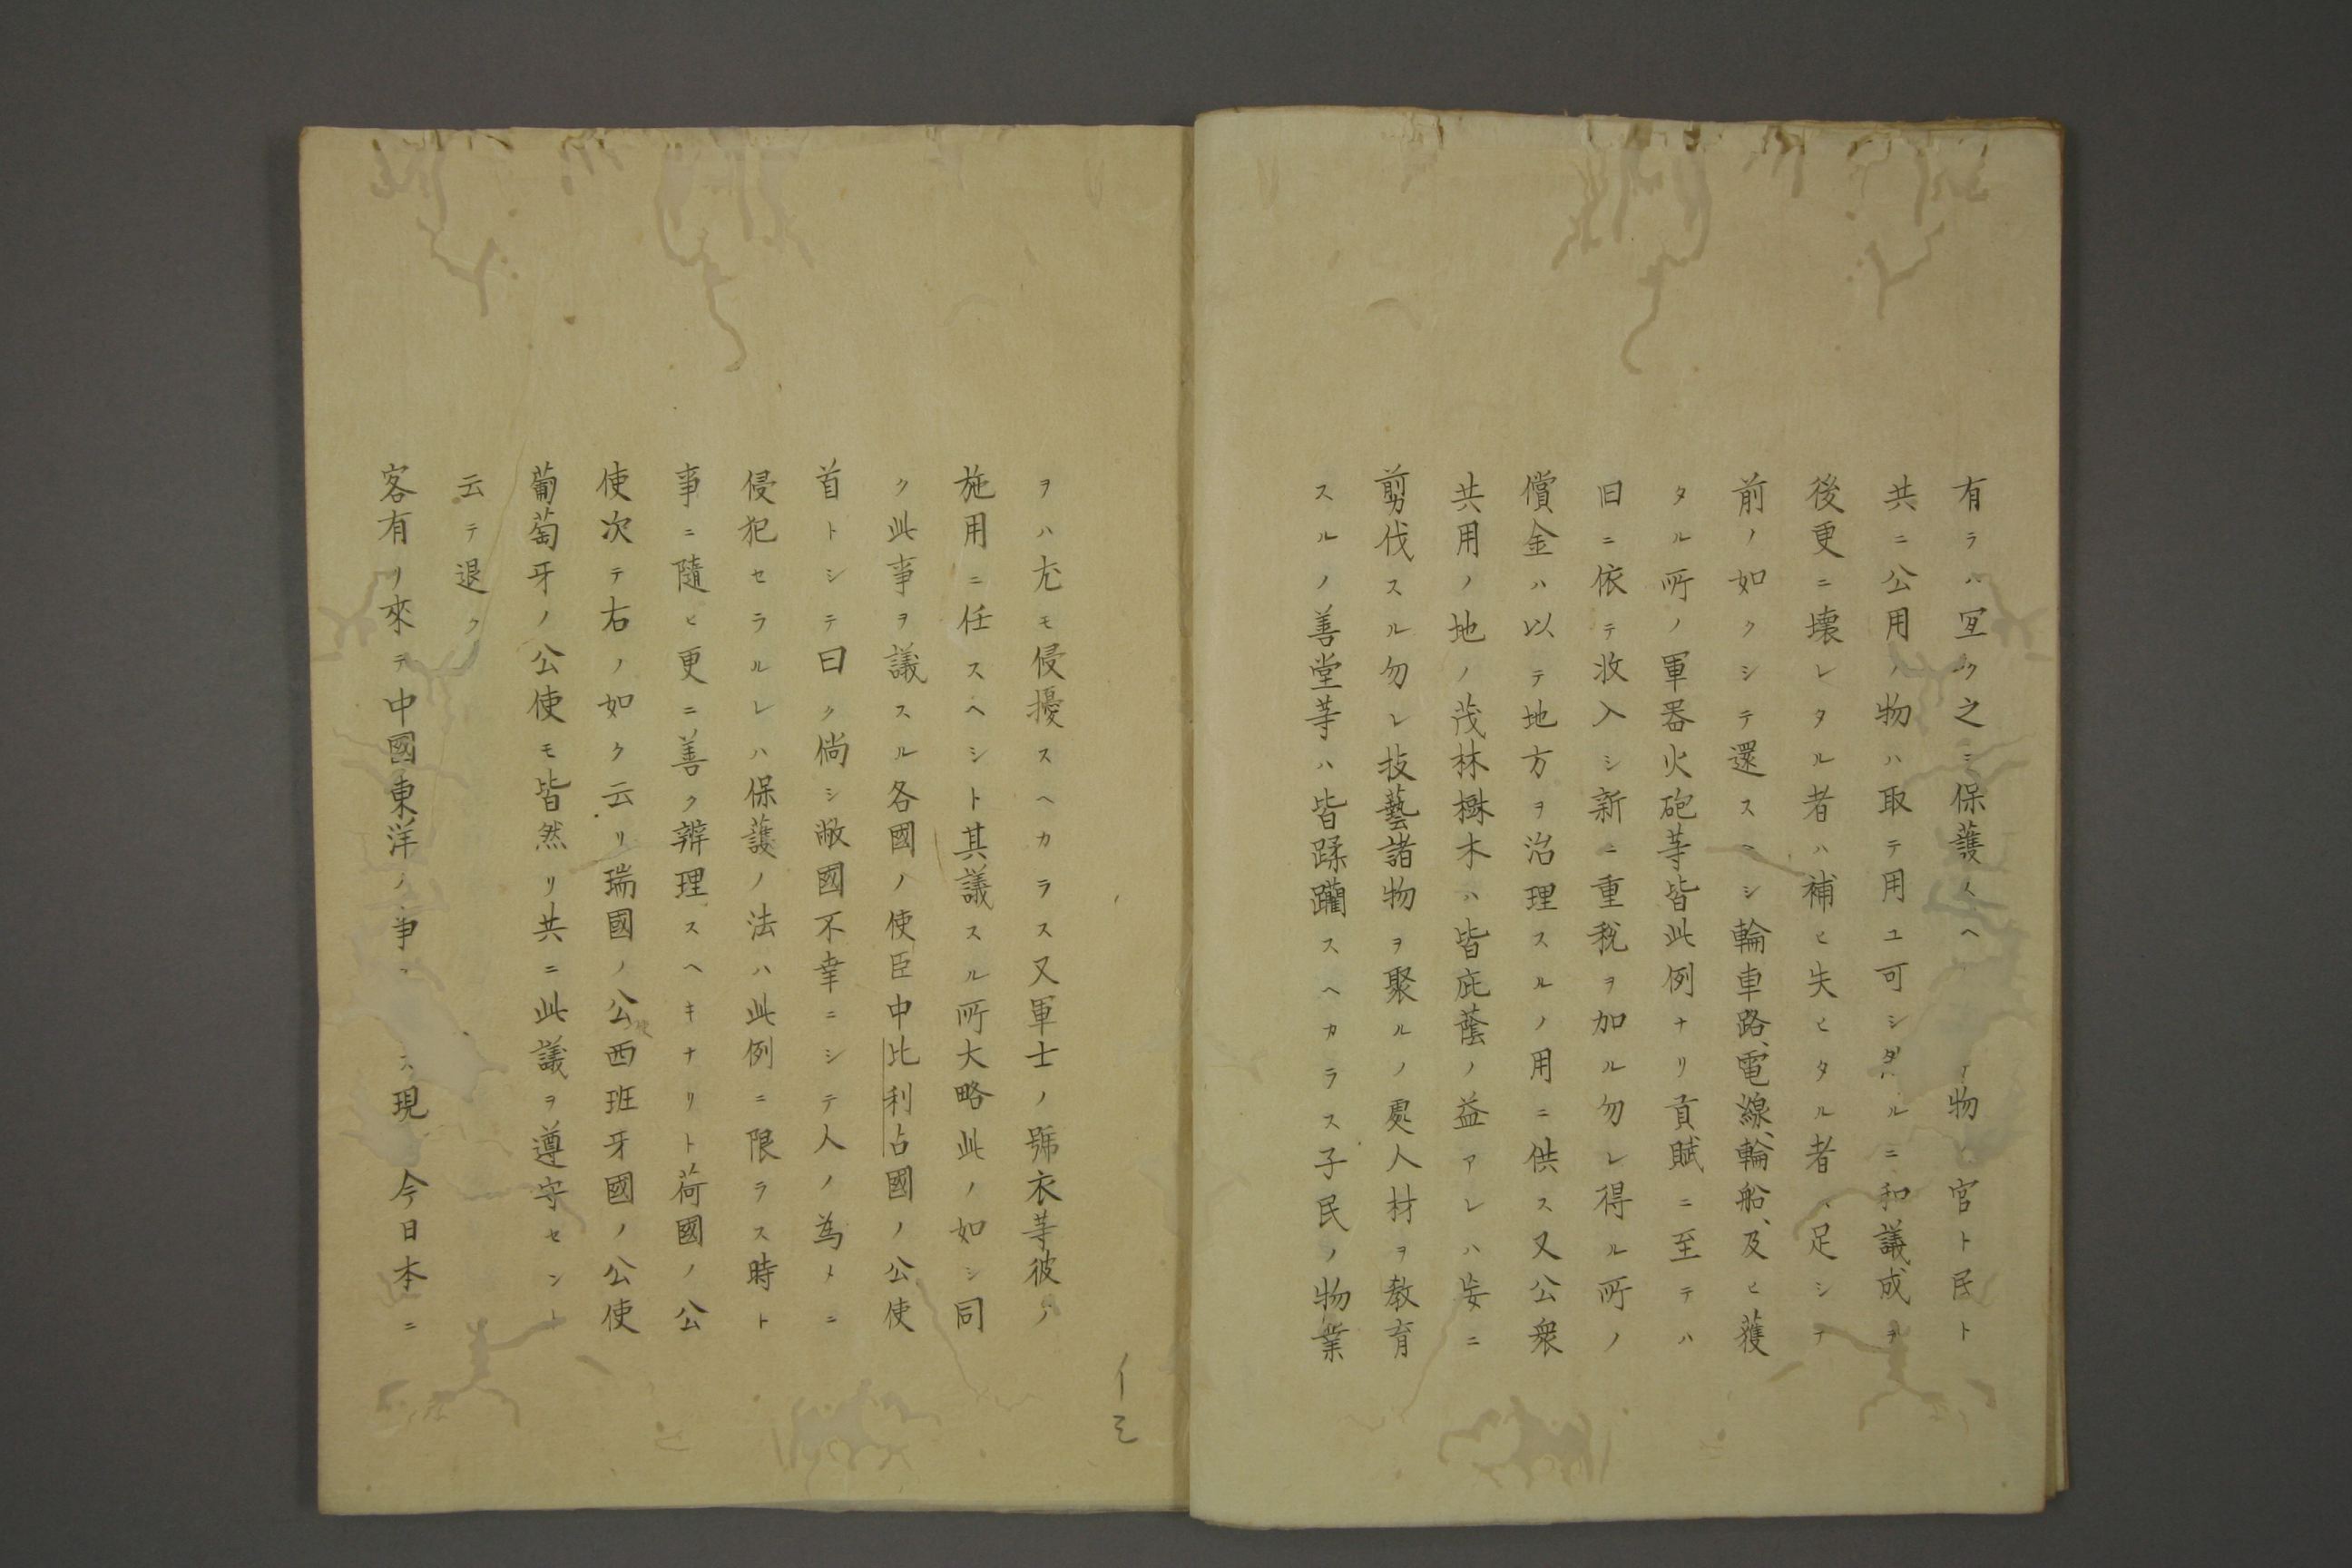 有ラハ冝ク之ヲ保護スヘ物官ト民ト
共ニ公用ノ物ハ取テ用ユ可シダルニ和議成テ
後更ニ壊レタル者ハ補ヒ失ヒタル者ハ足シテ
前ノ如クシテ還スヘシ輪車路、電線、輪船、及ヒ獲
タル所ノ軍器火砲等皆此例ナリ貢賦ニ至テハ
旧ニ依テ收入シ新ニ重税ヲ加ル勿レ得ル所ノ
償金ハ以テ地方ヲ治理スルノ用ニ供ス又公衆
共用ノ地ノ茂林樹木ハ皆庇蔭ノ益アレハ妄ニ
剪伐スル勿レ技藝諸物ヲ聚ルノ處人材ヲ教育
スルノ善堂等ハ皆蹂躙スヘカラス子民ノ物業
ヲハ尤モ侵擾スヘカラス又軍士ノ號衣等彼ノ
施用ニ任スヘシト其議スル所大略此ノ如シ同
ク此事ヲ議スル各國ノ使臣中比利占國ノ公使
首トシテ曰ク倘シ敝國不幸ニシテ人ノ為メニ
侵犯セラルレハ保護ノ法ハ此例ニ限ラス時ト
事ニ隨ヒ更ニ善ク辨理スヘキナリト荷國ノ公
使次テ右ノ如ク云リ瑞國ノ公使西班牙國ノ公使
葡萄牙ノ公使モ皆然リ共ニ此議ヲ遵守セント
云テ退ク
客有リ來テ中國東洋ノ事現今日本ニ